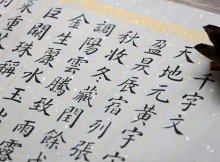 千字文
天地元黄宇
盈昃辰宿列張
秋收冬藏閏
調陽雲騰致雨
金生麗水玉
巨闕珠稱
重